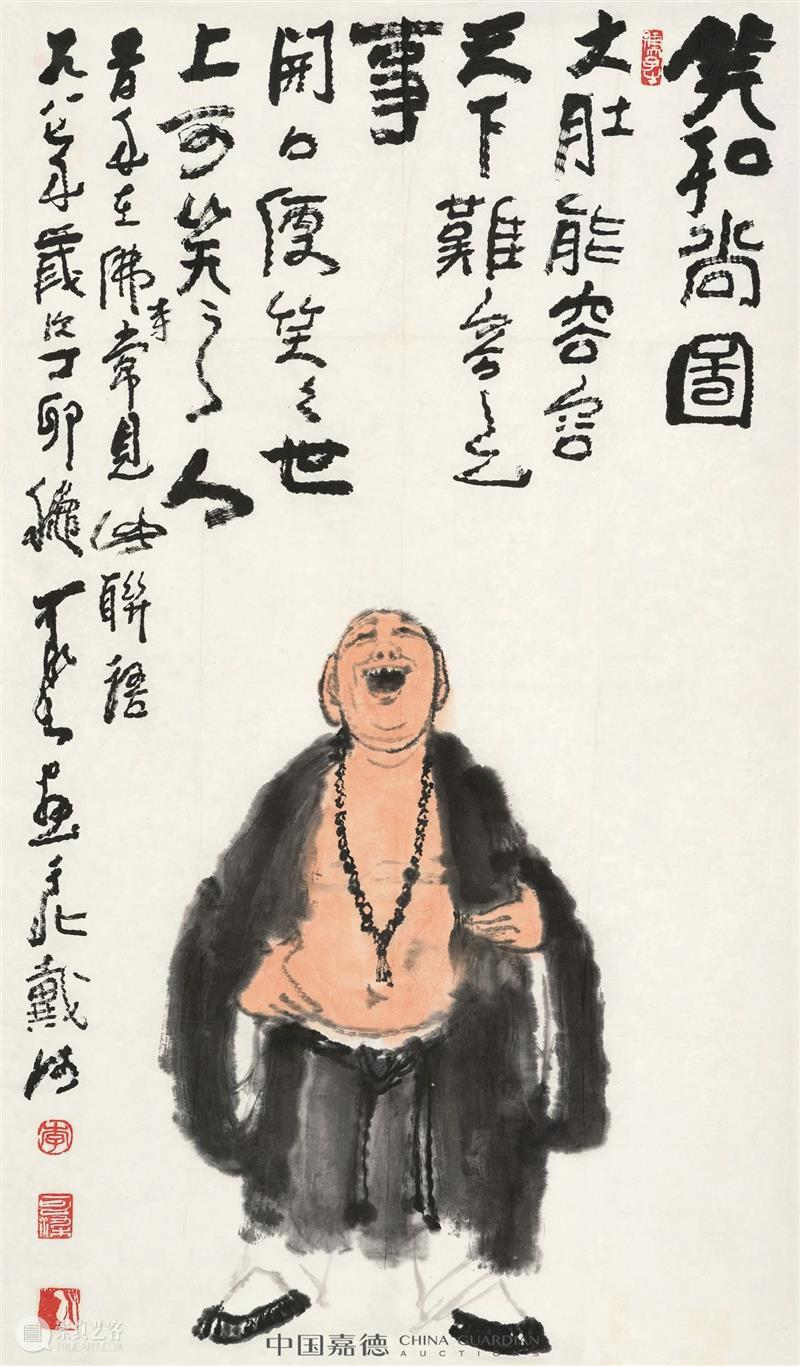 笑和尚圖
大肚能容容
天下難容之
事
開口便笑笑世
上可笑之人
昔年在佛寺常見此聯語
九八七年歲次丁卯 畫於北戴河
中国嘉德 CHINA GUARDIAN
AUCTIONS
崇真艺客